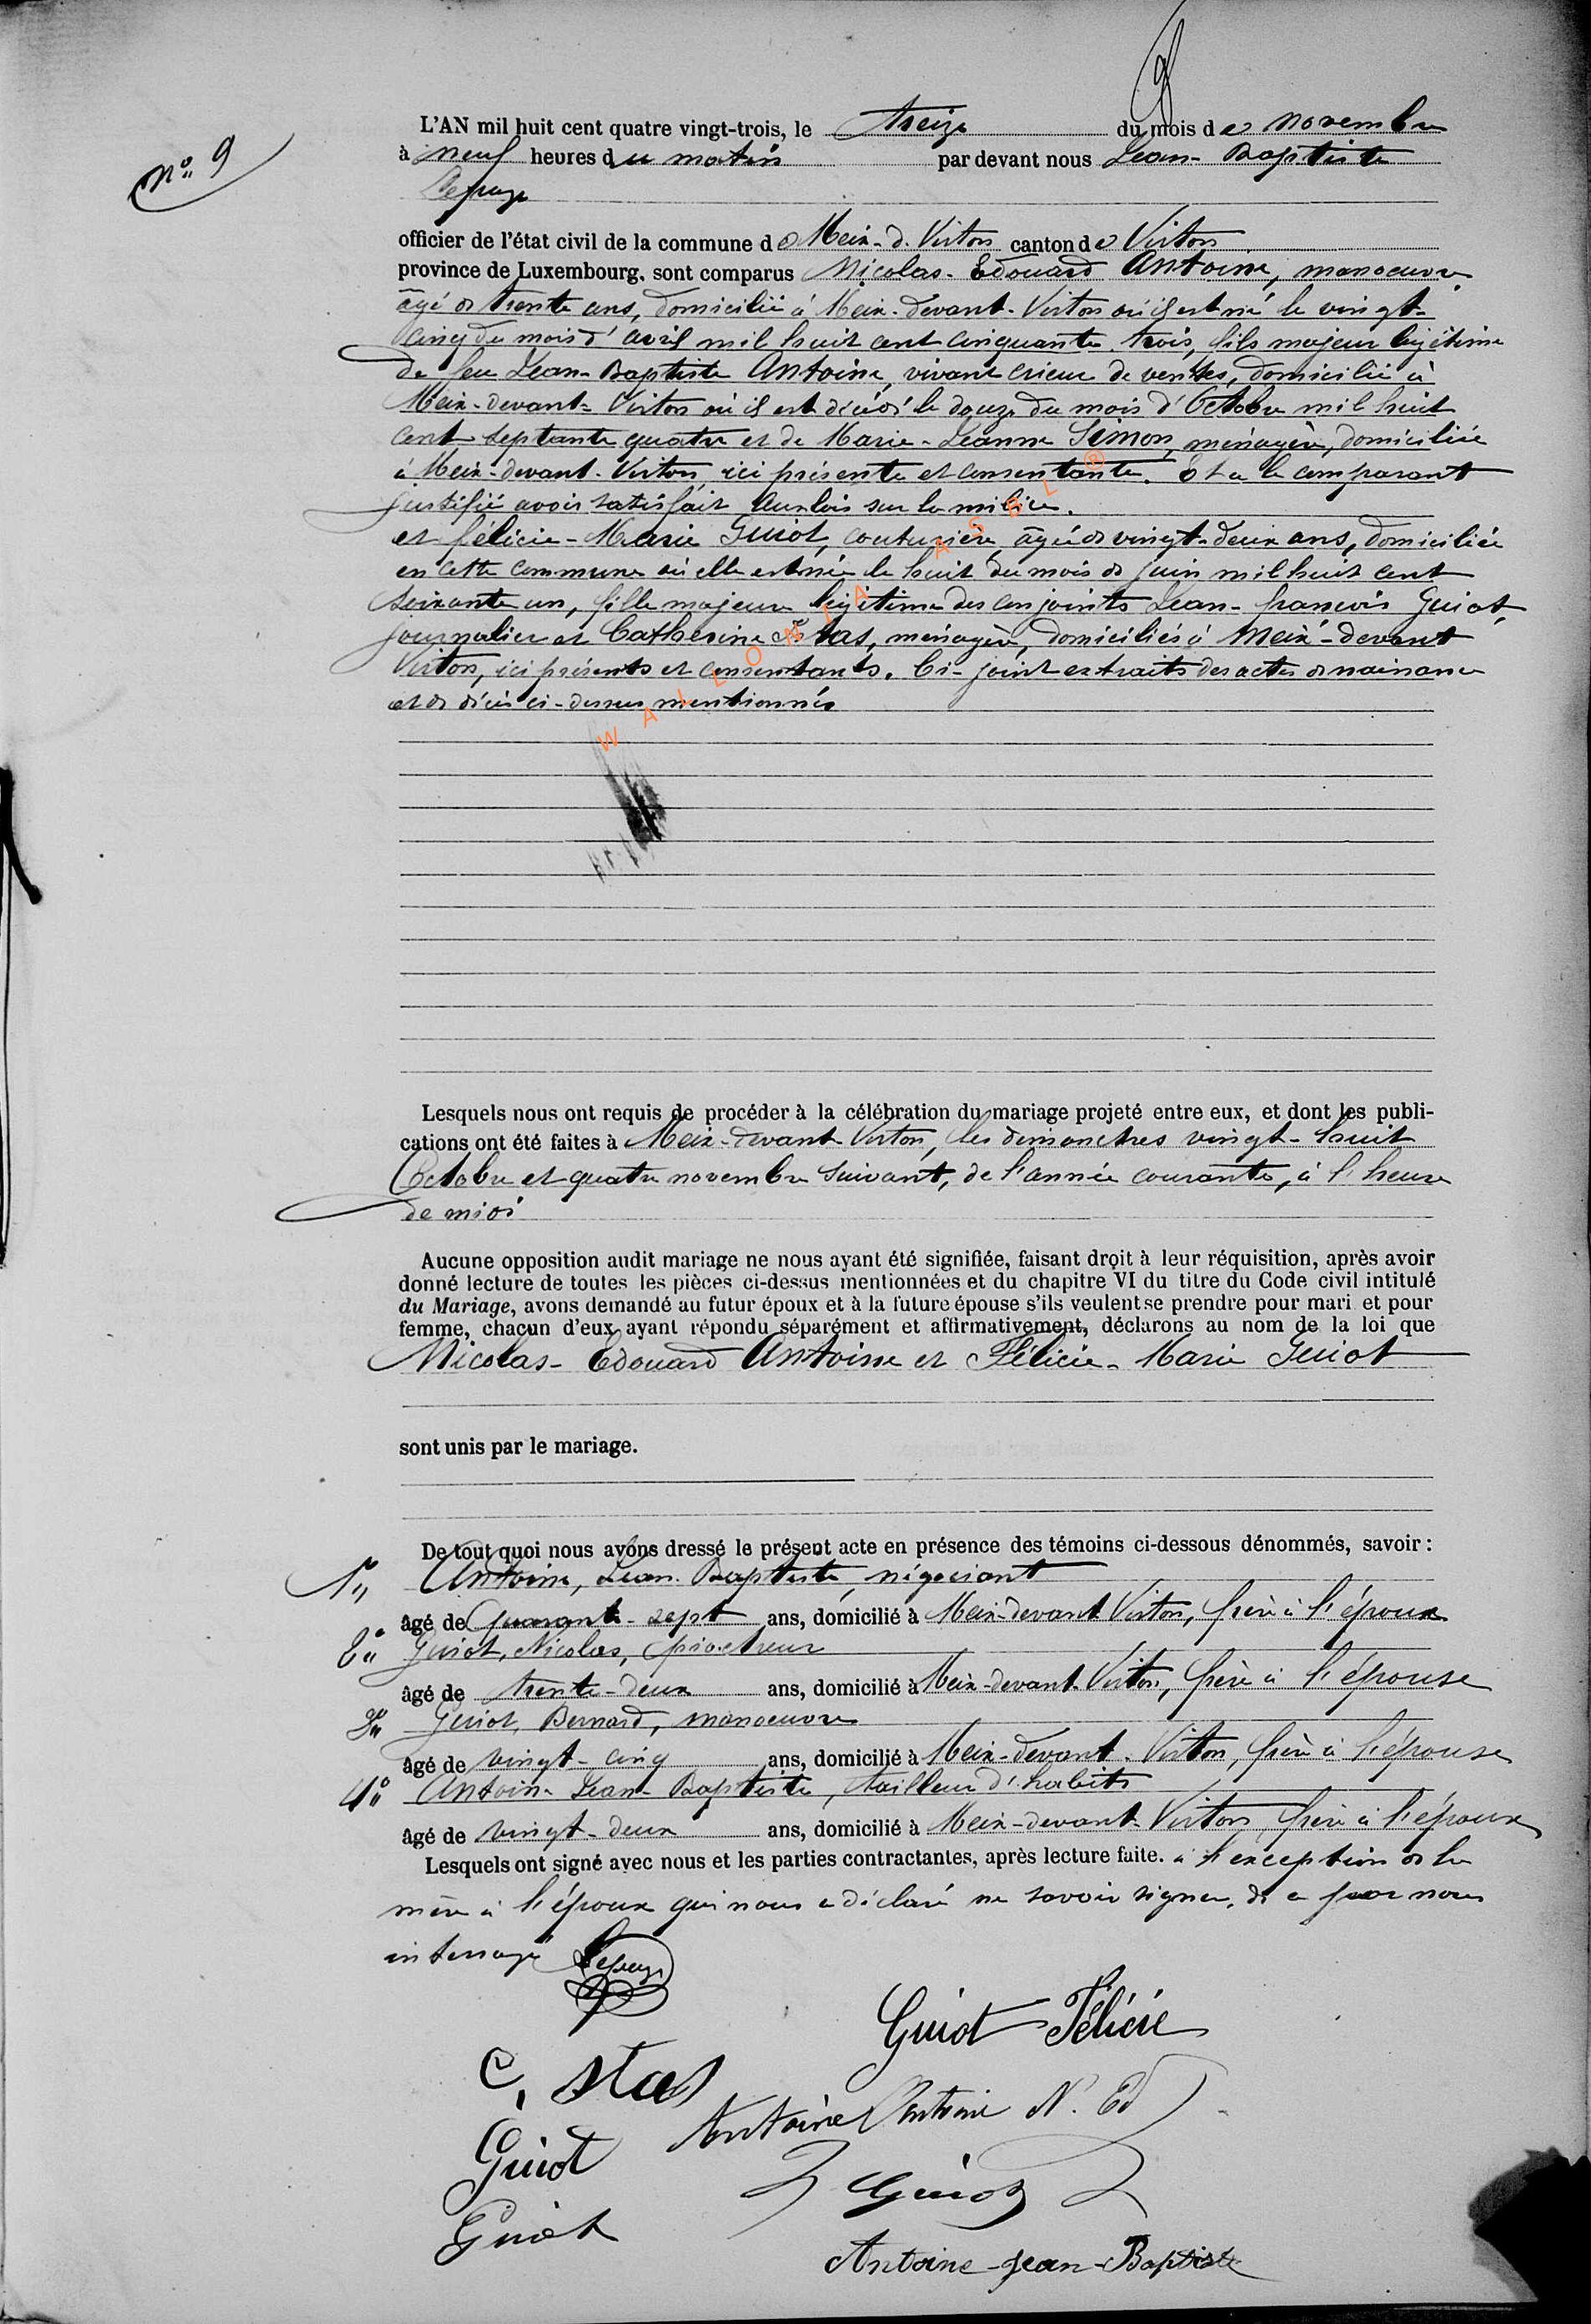 N° 9
L'AN mil huit cent quatre vingt-trois, le treize du mois de novembre
à neuf heures du matin par devant nous Jean-Baptiste
Lepage
officier de l'état civil de la commune de Meix-d. Virton canton de Virton
province de Luxembourg, sont comparus Nicolas-Edouard Antoine, manoeuvre
âgé de trente ans, domicilié à Meix-devant-Virton où il est né le vingt-
cinq du mois d'avril mil huit cent cinquante trois, fils majeur légitime
de feu Jean-Baptiste Antoine, vivant crieur de ventes, domicilié à
Meix-devant-Virton où il est décédé le douze du mois d'Octobre mil huit
cent septante quatre et de Marie-Jeanne Simon, ménagère, domiciliée
à Meix-devant-Virton, ici présente et consentante. Et a le comparant
justifié avoir satisfait aux lois sur la milice.
et félicie-Marie Guiot, couturière, âgée de vingt-deux ans, domiciliée
en cette commune où elle est née le huit du mois de juin mil huit cent
soixante un, fille majeure légitime des conjoints Jean-françois Guiot,
journalier et Catherine Stas, ménagère, domiciliés à Meix-devant
Virton, ici présents et consentants. Ci-joint extraits des actes de naissance
et de décès ci-dessus mentionnés
WALLONIA ASBL ®
Lesquels nous ont requis de procéder à la célébration du mariage projeté entre eux, et dont les publi-
cations ont été faites à Meix-devant-Virton, les dimanches vingt-huit
Octobre et quatre novembre suivant, de l'année courante, à l'heure
de midi
Aucune opposition audit mariage ne nous ayant été signifiée, faisant droit à leur réquisition, après avoir
donné lecture de toutes les pièces ci-dessus mentionnées et du chapitre VI du titre du Code civil intitulé
du Mariage, avons demandé au futur époux et à la future épouse s'ils veulent se prendre pour mari et pour
femme, chacun d'eux ayant répondu séparément et affirmativement, déclarons au nom de la loi que
Nicolas-Edouard Antoine et Félicie-Marie Guiot
sont unis par le mariage.
De tout quoi nous avons dressé le présent acte en présence des témoins ci-dessous dénommés, savoir :
1° Antoine, Jean-Baptiste, négociant
âgé de Quarante-sept ans, domicilié à Meix-devant Virton, frère à l'époux
2° Guiot, Nicolas,
âgé de trente-deux ans, domicilié à Meix-devant-Virton, frère à l'épouse
3° Guiot, Bernard, manoeuvre
âgé de vingt-cinq ans, domicilié à Meix-devant-Virton, frère à l'épouse
4° Antoine Jean-Baptiste, tailleur d'habits
âgé de vingt-deux ans, domicilié à Meix-devant-Virton, frère à l'époux
Lesquels ont signé avec nous et les parties contractantes, après lecture faite. à l'exception de la
mère à l'époux qui nous a déclaré ne savoir signer, de ce par nous
interrogé Lepage
Guiot Félicie
C. Stas
Antoine Antoine N. Ed
Guiot
Guiot
Guiot
Antoine-Jean-Baptiste